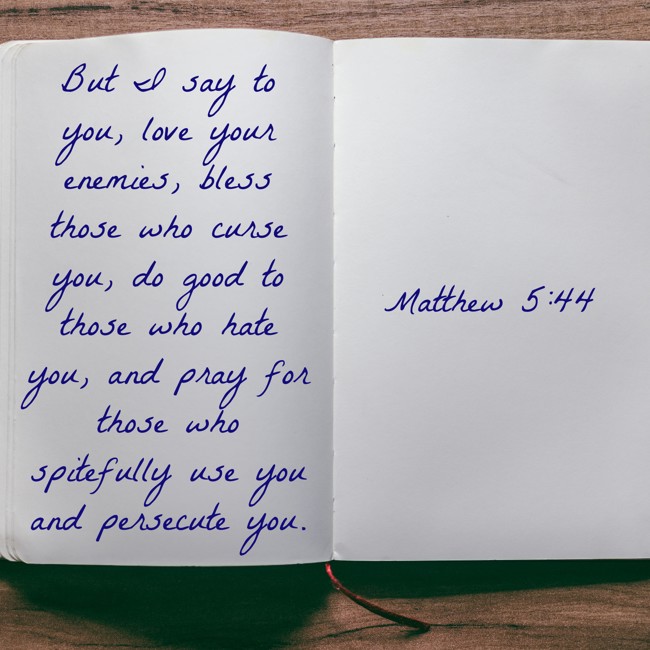 But I say to
you, love your
enemies, bless
those who curse
you, do good to
those who hate
you, and pray for
those who
spitefully use you
and persecute you.
Matthew 5:44